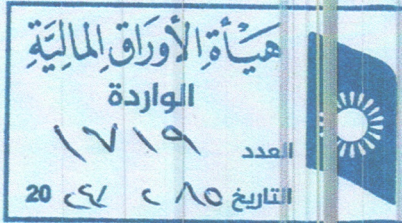 هيأة الأوراق المالية
الواردة
العدد ١٧١٩
التاريخ ٢/١٥ /٢٤ 20